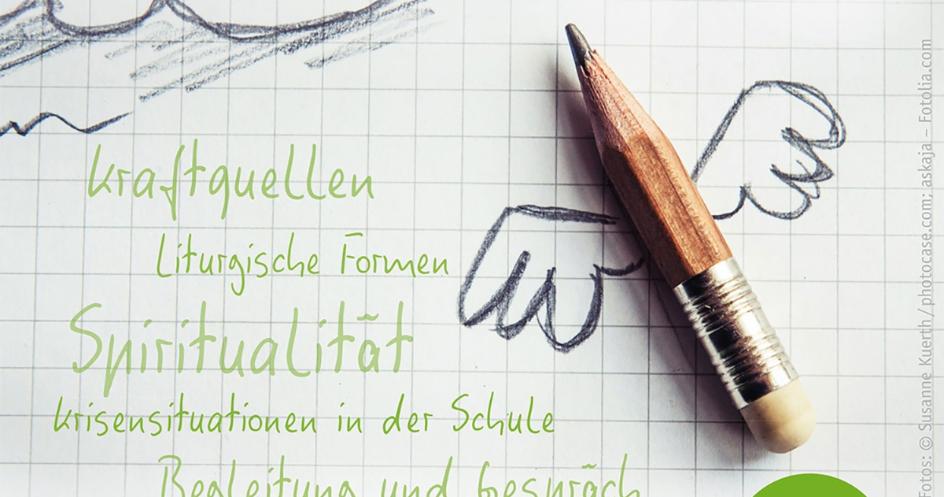 kraftquellen
Liturgische Formen
Spiritualität
krisensituationen in der Schule
Begleitung und Gespräch
Fotos: © Susanne Kuerth / photocase.com; askaja – Fotolia.com